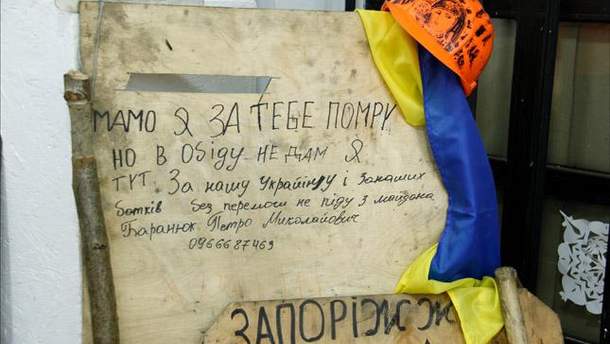 МАМО Я ЗА ТЕБЕ ПОМРУ
НО В ОБІДУ НЕ ДАМ Я
ТУТ За нашу Україїнру і За наших
батків без перемоги не піду з майдана
Баранюк Петро Миколайович
0966687469
ЗАПОРІЖЖ